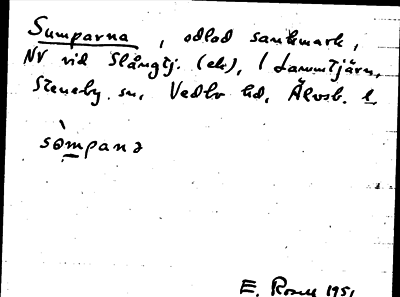 Sumparna, odlad sankmark,
NV vid Slångtj. (ek), i Lammtjärn,
Steneby sn. Vedbo hd, Älvsb. l.
sòmpanə
E. Rosell 1951